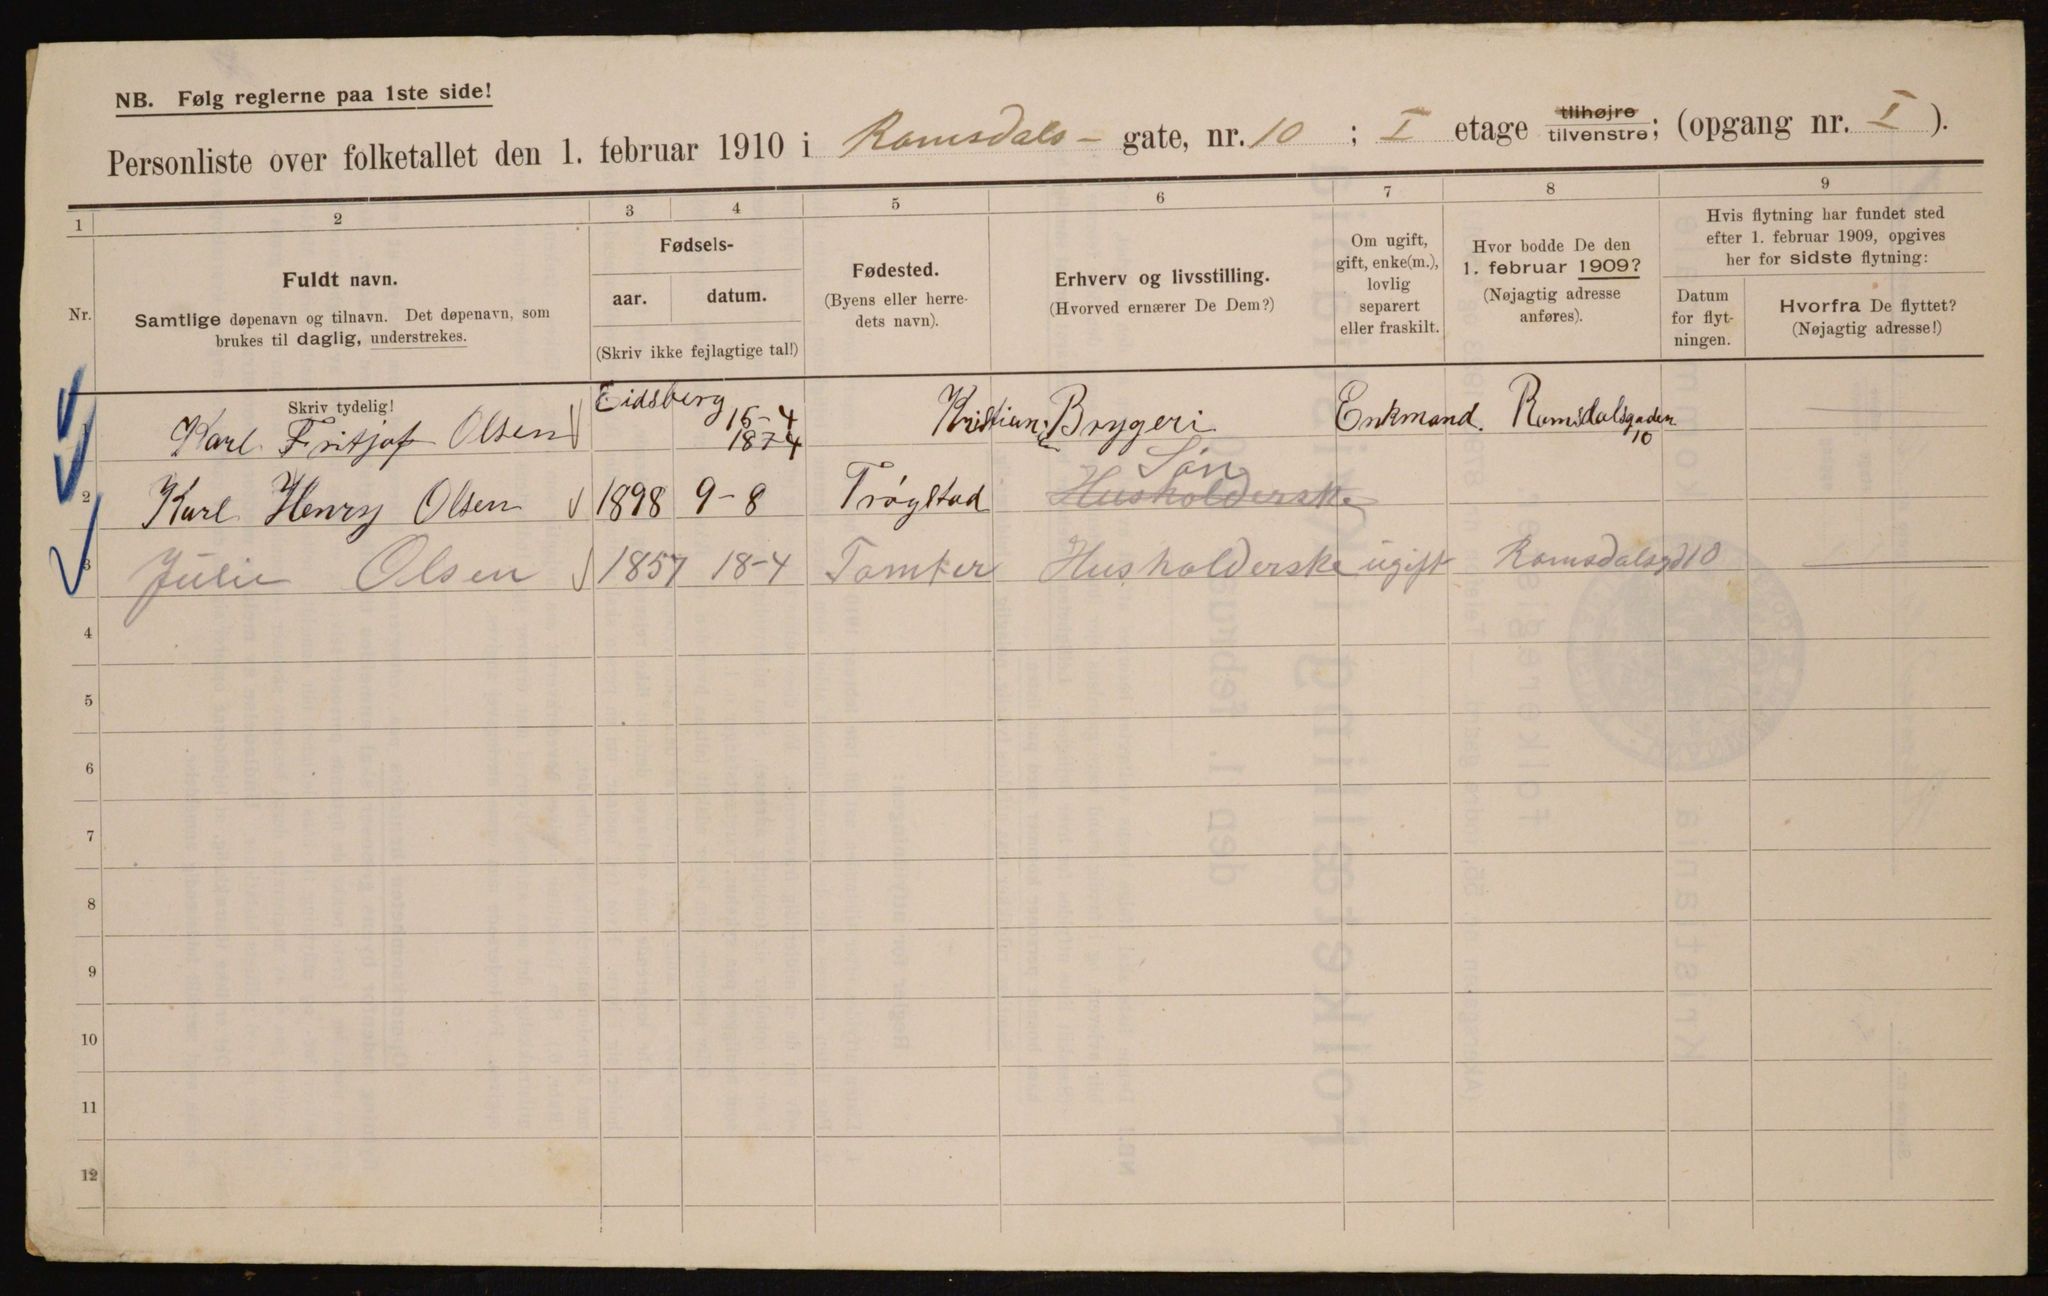 NB. Følg reglerne paa 1ste side!
Personliste over folketallet den 1. februar 1910 i Romsdals - gate, nr. 10 ; I etage tilhøjre tilvenstre; (opgang nr. I ).
1 2 3 4 5 6 7 8 9
Nr.
Fuldt navn.
Samtlige døpenavn og tilnavn. Det døpenavn, som
brukes til daglig, understrekes.
Fødsels-
aar. datum.
(Skriv ikke fejlagtige tal!)
Fødested.
(Byens eller herre-
dets navn).
Erhverv og livsstilling.
(Hvorved ernærer De Dem?)
Om ugift,
gift, enke(m.),
lovlig
separert
eller fraskilt.
Hvor bodde De den
1. februar 1909?
(Nøjagtig adresse
anføres).
Hvis flytning har fundet sted
efter 1. februar 1909, opgives
her for sidste flytning:
Datum
for flyt-
ningen.
Hvorfra De flyttet?
(Nøjagtig adresse!)
Skriv tydelig!
Karl Fritjof Olsen Eidsberg 15-4 1874 Kristian: Brygeri Enkmand. Romsdalsgaden 10
2 Karl Henry Olsen 1898 9-8 Trøgstad Husholderske Søn
3 Julie Olsen 1857 18-4 Tomter Husholderske ugift Romsdalsgd 10
4
5
6
7
8
9
10
11
12